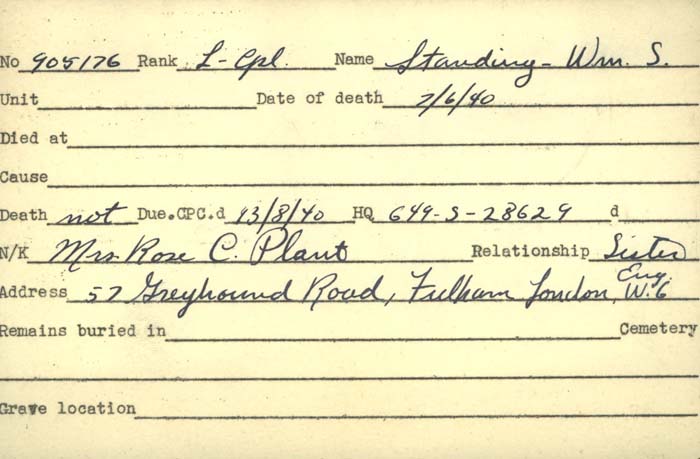 No 905176 Rank L-Cpl. Name Standing - Wm. S.
Unit Date of death 7/6/40
Died at
Cause
Death not Due.CPC.d 13/8/40 HQ 649-S-28629 d
N/K Mrs Rose C. Plant Relationship Sister
Address 57 Greyhound Road, Fulham London, Eng. W.6
Remains buried in Cemetery
Grave location